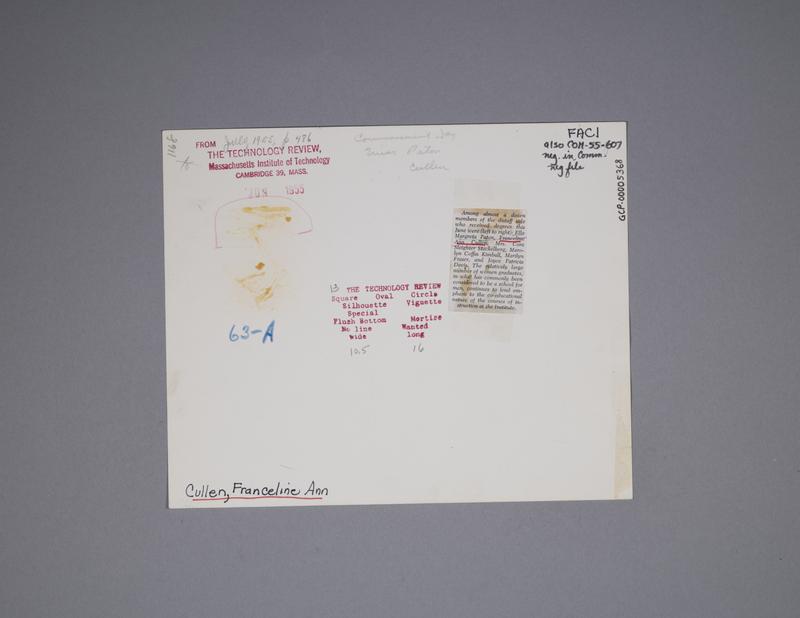 1168
FROM July 1955, p 486
THE TECHNOLOGY REVIEW,
Massachusetts Institute of Technology
CAMBRIDGE 39, MASS.
JUN 1955
Commencement Day
Paton
Cullen
FAC1
also COM-55-607
neg. in Comm.
neg file
GCP-00005368
Among almost a dozen
members of the distaff side
who received degrees this
June were (left to right): Ella
Margreta Paton, Franceline
Ann Cullen, Mrs.
Sleighter Stackelberg, Mary-
lyn Coffin Kimball, Marilyn
Fraser, and Joyce Patricia
Davis. The relatively large
number of women graduates,
in what has commonly been
considered to be a school for
men, continues to lend em-
phasis to the co-educational
nature of the courses of in-
struction at the Institute.
13 THE TECHNOLOGY REVIEW
Square Oval Circle
Silhouette Vignette
Special
Flush Bottom Mortise
No line Wanted
wide long
10.5 16
63-A
Cullen, Franceline Ann